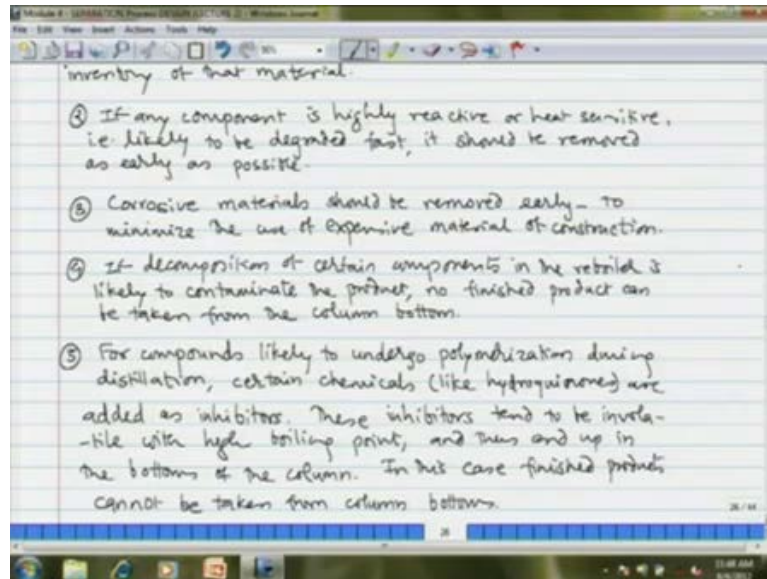 Module 4 - SEPARATION Process DESIGN (LECTURE 2) - Windows Journal
File Edit View Insert Actions Tools Help
inventory of that material.
② If any component is highly reactive or heat sensitive,
i.e. likely to be degraded fast, it should be removed
as early as possible.
③ Corrosive materials should be removed early - To
minimize the use of expensive material of construction.
④ If decomposition of certain components in the reboiler is
likely to contaminate the product, no finished product can
be taken from the column bottom.
⑤ For compounds likely to undergo polymerization during
distillation, certain chemicals (like hydroquinones) are
added as inhibitors. These inhibitors tend to be invola-
-tile with high boiling point, and thus end up in
the bottoms of the column. In this case finished products
cannot be taken from column bottoms.
26
11:48 AM